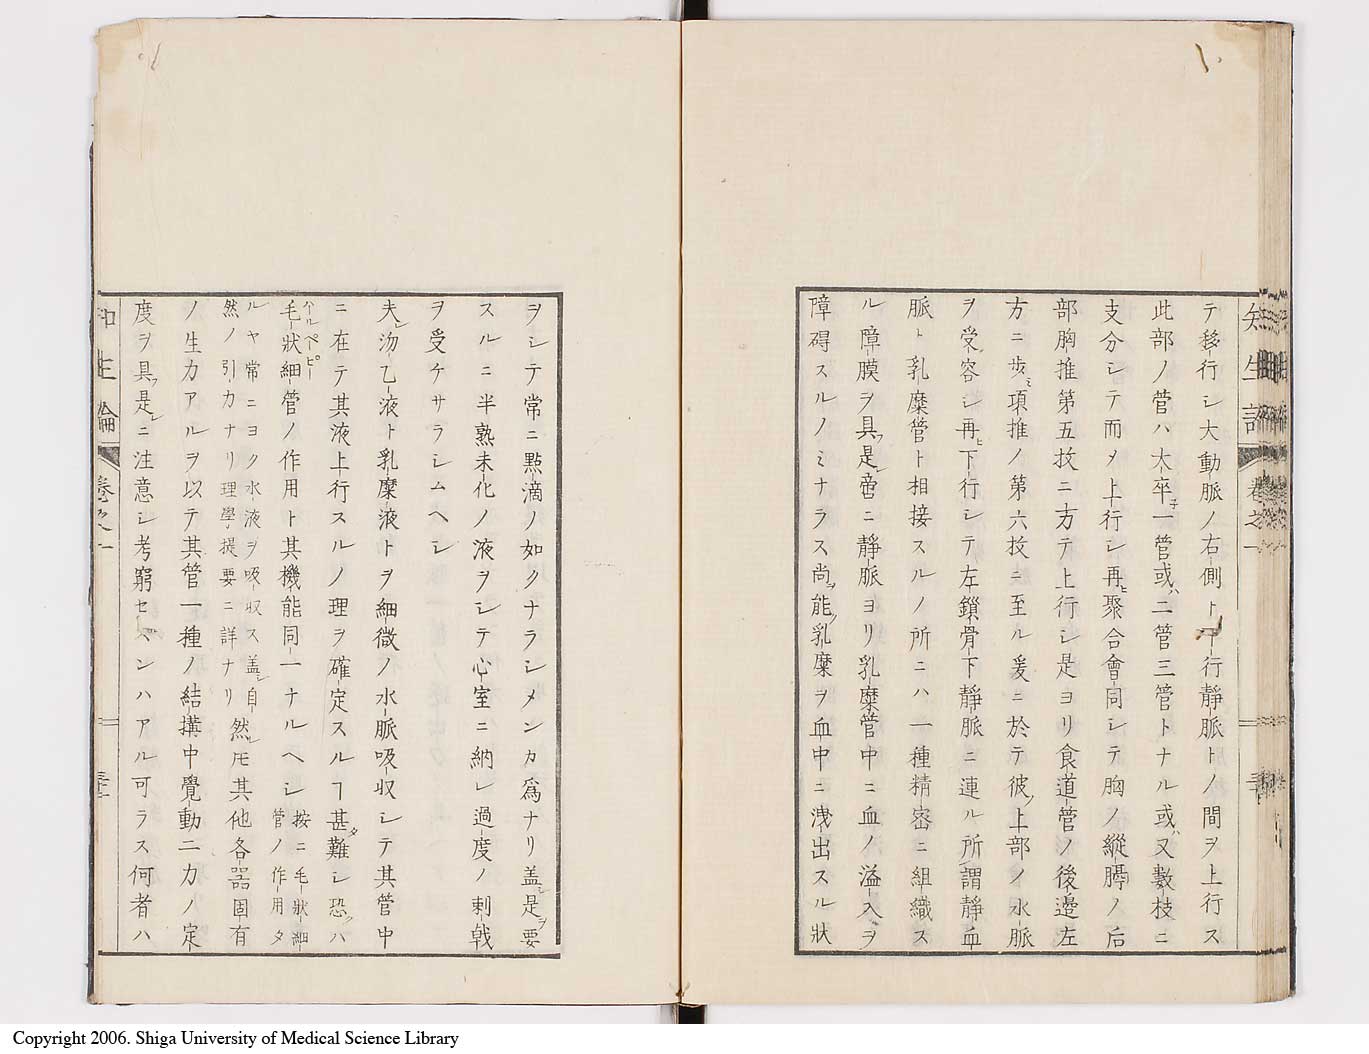 知生論 卷之一
テ移行シ大動脈ノ右側ト一行靜脈トノ間ヲ上行ス
此部ノ管ハ大卒一管或ハ二管三管トナル或ハ又數枝ニ
支分シテ而〆上行シ再ヒ聚合會同シテ胸ノ縦膈ノ后
部胸推第五抆ニ方テ上行シ是ヨリ食道管ノ後邊左
方ニ歩ミ項推ノ第六抆ニ至ル爰ニ於テ彼ノ上部ノ水脈
ヲ受容シ再ヒ下行シテ左鎖骨下靜脈ニ連ル所謂靜血
脈ト乳糜管ト相接スルノ所ニハ一種精密ニ組織ス
ル障膜ヲ具フ是レ啻ニ靜脈ヨリ乳糜管中ニ血ノ溢入ヲ
障碍スルノミナラス尚ヲ能ク乳糜ヲ血中ニ洩出スル狀
ヲシテ常ニ點滴ノ如クナラシメンカ爲ナリ盖シ是ヲ要
スルニ半熟未化ノ液ヲシテ心室ニ納レ過度ノ刺戟
ヲ受ケサラシムヘシ
夫レ沕乙液ト乳糜液トヲ細微ノ水脈吸収シテ其管中
ニ在テ其液上行スルノ理ヲ確定スルヿ甚タ難シ恐クハ
毛狀細管ノ作用ト其機能同一ナルヘシ
按ニ毛狀細
管ノ作用タ
ルヤ常ニヨク水液ヲ吸収ス盖シ自
然ノ引力ナリ理學提要ニ詳ナリ
然レ𪜈其他各器固有
ノ生力アルヲ以テ其管一種ノ結搆中覺動二力ノ定
度ヲ具フ是レニ注意シ考窮セスンハアル可ラス何者ハ
知生論 卷之一
Copyright 2006. Shiga University of Medical Science Library